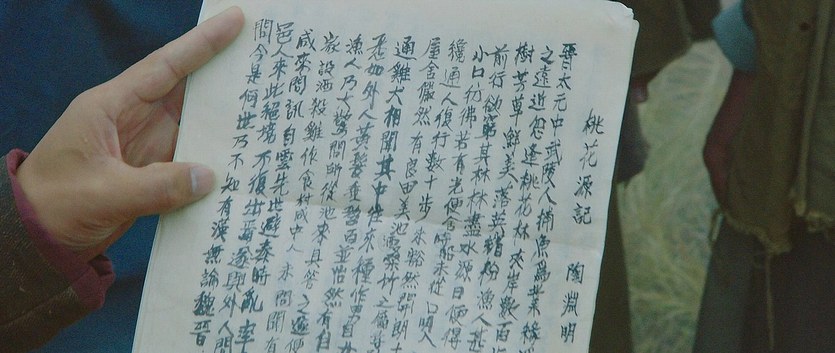 桃花源記 陶淵明
晉太元中武陵人捕魚為業緣
之遠近忽逢桃花林夾岸數百
樹芳草鮮美落英繽紛漁人甚
前行欲窮其林林盡水源便得
小口彷彿若有光便舍船從口入
纔通人復行數十步豁然開朗土
屋舍儼然有良田美池桑竹之屬
通雞犬相聞其中往來種作男女
悉如外人黃髮垂髫並怡然有自
漁人乃大驚問所從來具答之遂便
家設酒殺雞作食村中人聞有
咸來問訊自云先世避秦時亂率
邑人來此絕境不復出焉遂與外人間
問今是何世乃不知有漢無論魏晉